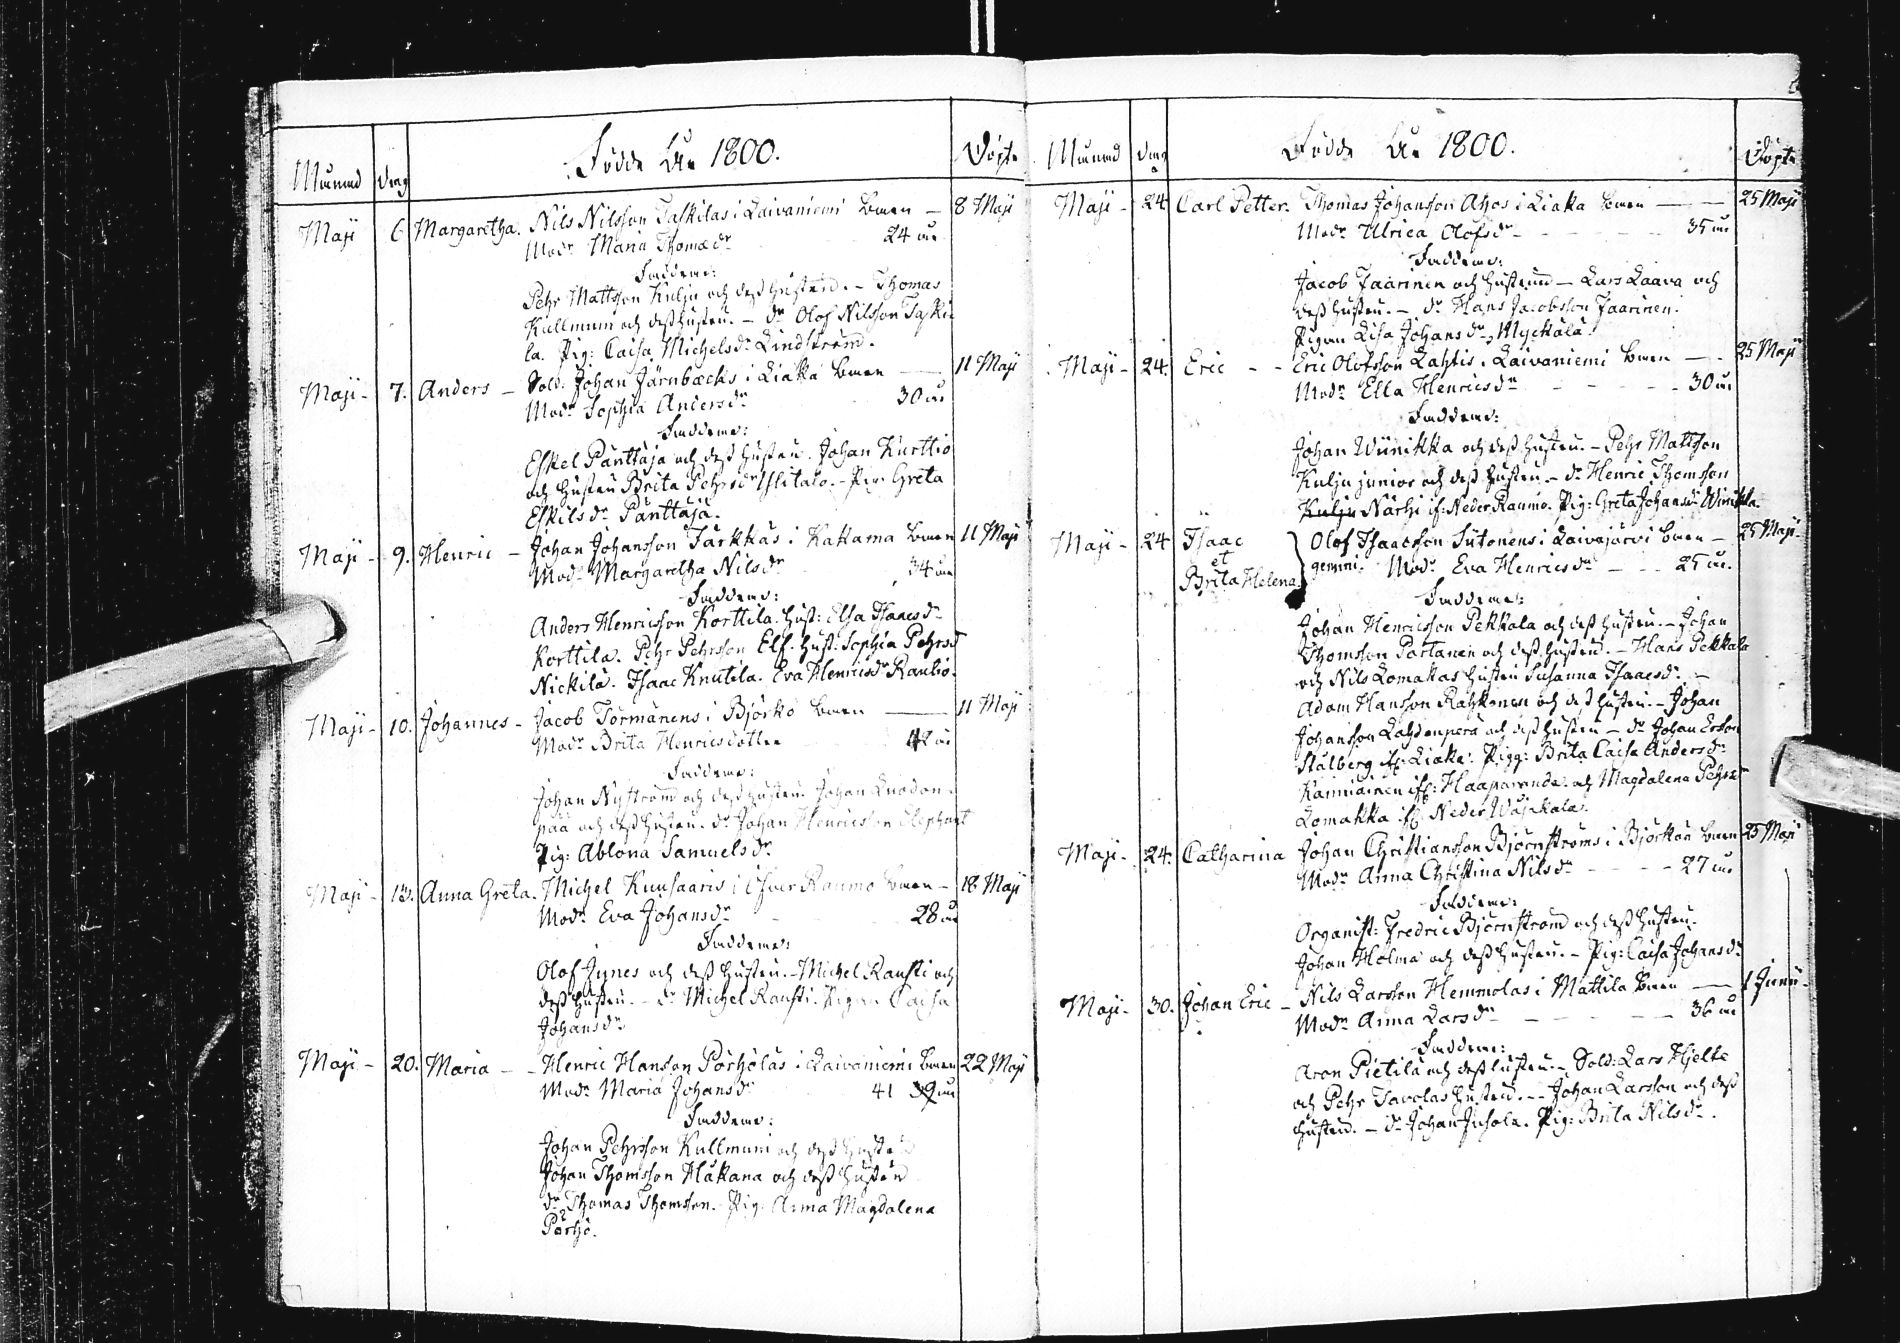 Födde År 1800.
Månad Dag Döpte
Maji 6 Margaretha. Nils Nilsson Taskilas i Laivaniemi barn — 8 Maji
Modr Maria Thomædr 24 år
Faddrar:
Pehr Mattsson Kulju och dess hustru. – Thomas
Kullmum och dess hustru. – dr Olof Nilsson Taski-
la. Pig: Caisa Michelsdr Lindström.
Maji - 7. Anders - Sold: Johan Järnbäcks i Liakka barn — 11 Maji
Modr Sophia Andersdr 30 år
Faddrar:
Eskel Panttaja och dess hustru. Johan Kurttio
och hustru Brita Pehrsdr Ylitalo. - Pig: Greta
Eskilsdr Panttaja.
Maji - 9. Henric - Johan Johansson Tarkkas i Kakama barn 11 Maji
Modr Margaretha Nilsdr 34 år
Faddrar:
Anders Henricsson Korttila. hust: Elsa Isaacsdr
Korttila. Pehr Pehrsson Elf. hust: Sophia Pehrsd
Nickilä. Isaac Knutila. Eva Henricsdr Rautio.
Maji - 10. Johannes - Jacob Törmänens i Björkö barn — 11 Maji
Modr Brita Henricsdotter 42 år
Faddrar:
Johan Nyström och dess hustru. Johan
pää och dess hustru. dr Johan Henricsson Elephant
Pig: Ablona Samuelsdr
Maji - 13. Anna Greta. Michel Kuusaaris i Öfver Raumo barn - 18 Maji
Modr Eva Johansdr 28 år
Faddrar:
Olof Jynes och dess hustru. – Michel Rausti och
dess hustru. – dr Michel Rausti. Pigan Caisa
Johansdr
Maji - 20. Maria - - Henric Hansson Pörhölas i Laivaniemi barn 22 Maji
Modr Maria Johansdr 41 39 år
Faddrar:
Johan Pehrsson Kullmuni och dess hustru
Johan Thomsson Hakana och dess hustru
dr Thomas Thomsson. Pig: Anna Magdalena
Pörhö.
Födde År 1800.
Månad Dag Döpte
Maji - 24 Carl Petter. Thomas Johansson Ahos i Liakka barn — — 25 Maji
Modr Ulrica Olofsdr - - - - - 35 år
Faddrar:
Jacob Jaarinen och hustrun – Lars Laava och
dess hustru. – dr Hans Jacobsson Jaarinen.
Pigan Lisa Johansdr Myckälä.
Maji - 24. Eric - - Eric Olofsson Lahtis. Laivaniemi barn — 25 Maji
Modr Ella Henricsdr - - - - 30 år
Faddrar:
Johan Wiinikka och dess hustru. – Pehr Mattsson
Kulju junior och dess hustru. – dr Henric Thomsson
Kulju Närhi if: Neder Raumo. Pig: Greta Johansdr Winikka
Maji - 24 Isaac
et
Brita Helena. Olof Isaacsson Sutonens i Laivajärvi barn – 25 Maji.
gemini. Modr Eva Henricsdr — - 25 år.
Faddrar:
Johan Henricsson Pekkala och dess hustru. – Johan
Thomsson Partanen och dess hustru. – Hans Pekkala
och Nils Lomakas hustru Susanna Isaacsdr. –
Adam Hansson Rahkonen och dess hustru. – Johan
Johansson Lahdenperä och dess hustru – dr Johan Ersson
Stålberg if: Liakka. Pigg: Brita Caisa Andersdr
Kainiainen if: Haaparanda. och Magdalena Pehrsdr
Lomakka if: Neder Wojakala.
Maji - 24. Catharina Johan Christiansson Björnströms i Björkön barn 25 Maji
Modr Anna Christina Nilsdr - - - - 27 år
Faddrar:
Organist: Fredric Björnström och dess hustru.
Johan Holma och dess hustru. – Pig: Caisa Johansdr
Maji - 30. Johan Eric - Nils Larsson Hemmolas i Mattila barn — 1 Junii -
Modr Anna Larsdr - - - - - 36 år
Faddrar:
Aron Pietilä och dess hustru. – Sold: Lars Hjelte
och Pehr Tavolas hustru. - - Johan Larsson och dess
hustru. – dr Johan Juhola. Pig: Brita Nilsdr.